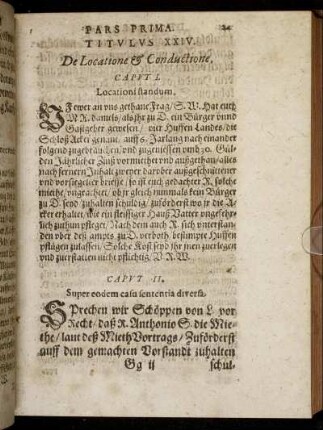 PARS PRIMA.
TITVLVS XXIV.
De Locatione & Conductione,
CAPVT I.
Locationi standum.
Vff ewer an vns gethane Frag / S. W. Hat euch
R. damals / als jhr zu D. ein Bürger vnnd
Gastgeber gewesen / vier Huffen Landes / die
Schloß Acker genant / auff 6. Jarlang nach einander
folgend zugebrauchen / vnd zugeniessen vmb 30. Gül-
den Jährlicher Zinß vormiehtet vnd außgethan / alles
nach fernern Inhalt zweyer darüber auffgeschnittener
vnd vorsiegelter brieffe / so ist euch gedachter R. solche
miehte, / ob jhr gleich nunmals kein Bürger
zu D. seyd zuhalten schuldig / zuförderst wo jr die A-
cker erhaltet / wie ein fleissiger Hauß Vatter
lich zuthun pfleget / Nach dem auch R. sich vnterstan
den vber deß ampts zu D. verboth bestimpte Huffen
pflügen zulassen / Solche Kost seyd jhr jme zuerlegen
vnd zuerstatten nicht pflichtig / V. R. W.
CAPVT II.
Super eodem casu sententia diversa.
Sprechen wir Schöppen von L. vor
Recht / daß R. Anthonio S. die Mie-
the / laut deß Mieth Vortrags / Zuförderst
auff dem gemachten Vorstandt zuhalten
Gg ij schul-